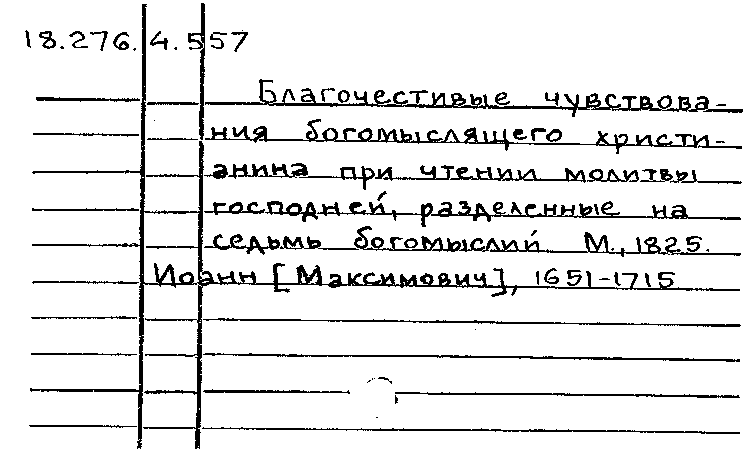 18.276.4.557
Благочестивые чувствова-
ния богомыслящего христи-
анина при чтении молитвы
господней, разделенные на
седьмь богомыслий. М., 1825.
Иоанн [Максимович], 1651-1715